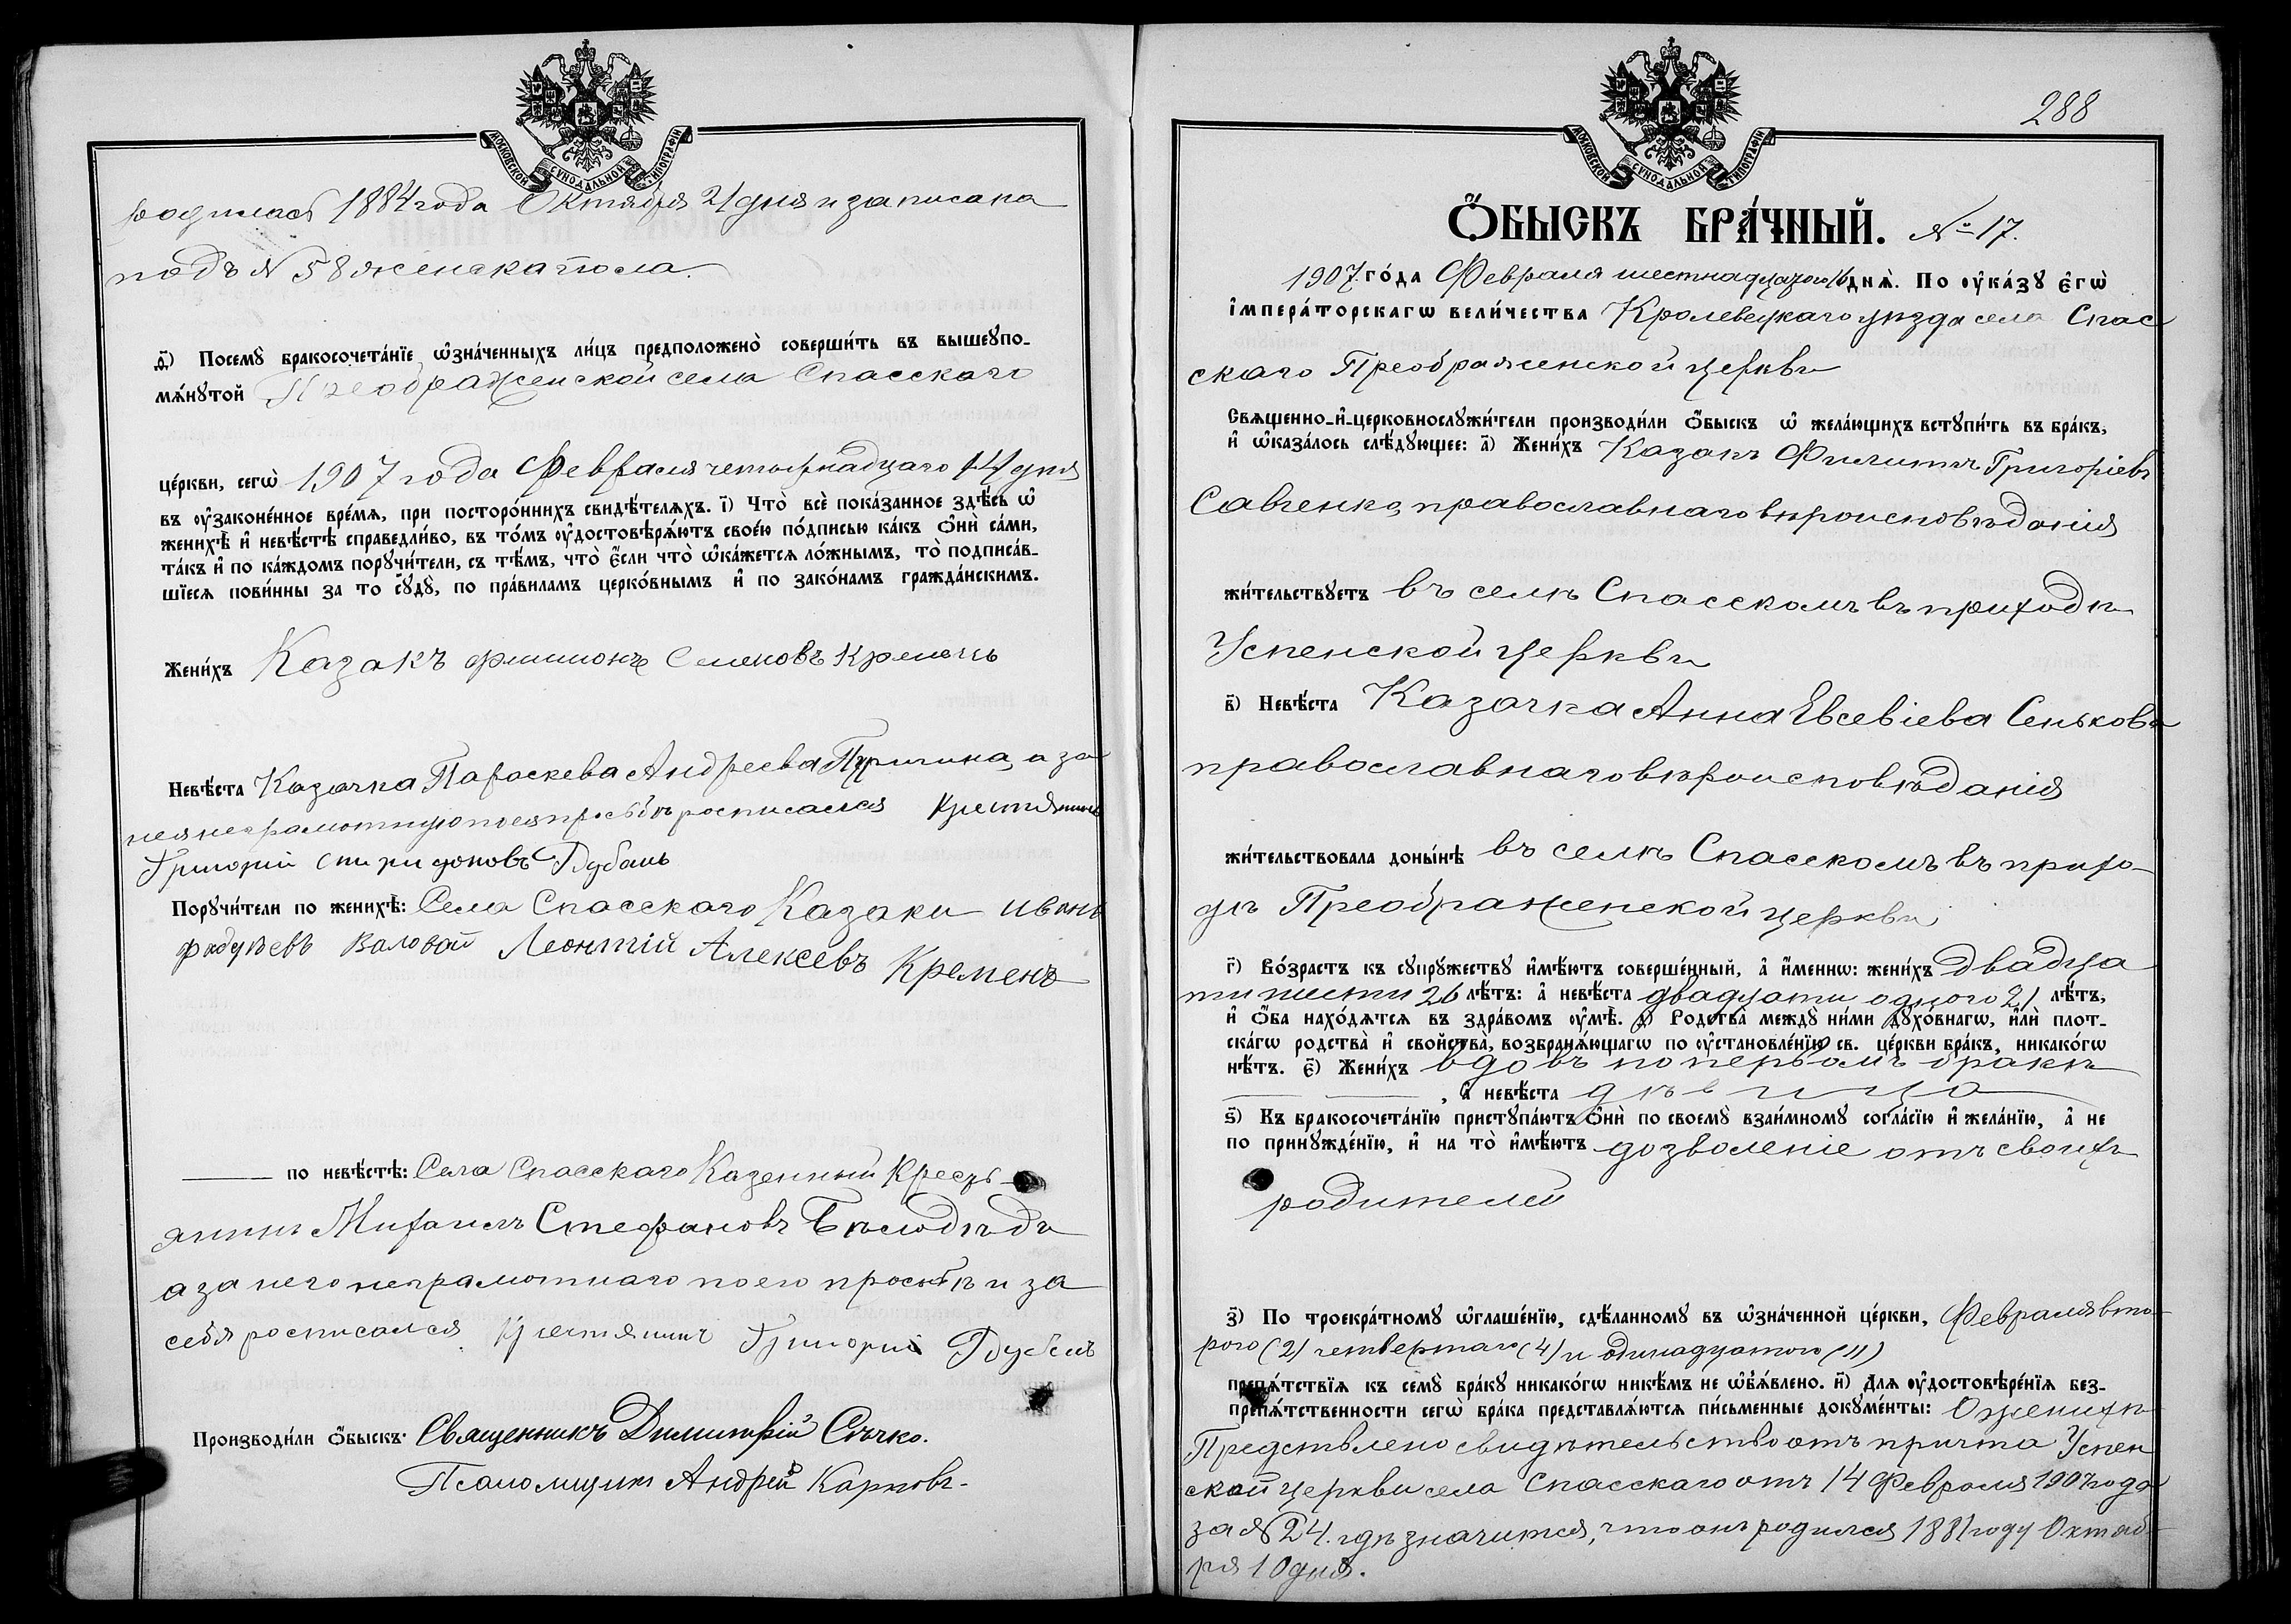 МОСКОВСКОЙ СУНОДАЛЬНОЙ ТИПОГРАФІИ
родилась 1884 года Октября 21 дня и записана
подъ № 58 женска пола.
д҃) Посемꙋ̀ бракосочета́нїе ѡ҆зна́ченныхъ ли́цъ предположено̀ соверши́ть въ вышеꙋпо-
мѧ́нꙋтой Преображенской села Спасскаго
це́ркви, сегѡ̀ 1907 года Февраля четырнадцаго 14 дня
въ ᲂу҆законе́нное вре́мѧ, при посторо́ннихъ свидѣ́телѧхъ. і҃) Что̀ всѐ пока́занное здѣ́сь ѡ҆
женихѣ̀ и҆ невѣ́стѣ справедли́во, въ то́мъ ᲂу҆достовѣрѧ́ютъ свое́ю по́дписью ка́къ ѻ҆нѝ са́ми,
та́къ и҆ по ка́ждомъ порꙋчи́тели, съ тѣ́мъ, что̀ є҆́сли что̀ ѡ҆ка́жетсѧ ло́жнымъ, то̀ подписа́в-
шїесѧ пови́нны за то сꙋдꙋ̀, по пра́виламъ церко́внымъ и҆ по зако́намъ гражда́нскимъ.
Жени́хъ Казакъ Филимонъ Семеновъ Кремень
Невѣ́ста Казачка Параскева Андреева а за
нея неграмотную по ея просьбѣ росписался Крестянинъ
Григорій Спиридоновъ
Порꙋчи́тели по женихѣ̀: Села Спасскаго Казаки Иванъ
Валовай Леонтій Алексеевъ Кремень
по невѣ́стѣ: Села Спасскаго Казенный Крестъ-
янинъ Михаилъ Стефановъ Бѣлодѣдъ
а за него неграмотнаго по его просьбѣ и за
себя росписался Крестянинъ Григорій
Производи́ли ѻ҆́быскъ: Священникъ Димитрій Сѣчко.
Псаломщикъ Андрей Карповъ.
288
МОСКОВСКОЙ СУНОДАЛЬНОЙ ТИПОГРАФІИ
Ѻ҆́БЫСКЪ БРА́ЧНЫЙ. № 17.
1907 го́да Февраля шестнадцатого 16 днѧ̀. По ᲂу҆ка́зꙋ є҆гѡ̀
і҆мпера́торскагѡ вели́чества Кролевецкаго уѣзда села Спас
скаго Преображенской церкви
Свѧщенно-и҆-церковнослꙋжи́тели производи́ли ѻ҆́быскъ ѡ҆ жела́ющихъ встꙋпи́ть въ бра́къ,
и҆ ѡ҆каза́лось слѣ́дꙋющее: а҃) Жени́хъ Казакъ Филиппъ Григоріевъ
Савченко, православнаго вѣроисповѣданія
жи́тельствꙋетъ въ селѣ Спасскомъ въ приходѣ
Успенской церкви
в҃) Невѣ́ста Казачка Анна Евсевіева Сенькова
православнаго вѣроисповѣданія
жи́тельствовала доны́нѣ въ селѣ Спасскомъ въ прихо-
дѣ Преображенской церкви
г҃) Во́зрастъ къ сꙋпрꙋ́жествꙋ и҆мѣ́ютъ соверше́нный, а҆ и҆́меннѡ: жени́хъ двадца
ти шести 26 лѣ́тъ: а҆ невѣ́ста двадцати одного 21 лѣ́тъ,
и҆ ѻ҆́ба нахо́дѧтсѧ въ здра́вомъ ᲂу҆мѣ̀. д҃) Родства̀ междꙋ̀ ни́ми дꙋхо́внагѡ, и҆лѝ плот-
ска́гѡ родства̀ и҆ свойства̀, возбранѧ́ющагѡ по ᲂу҆становле́нїю св. це́ркви бра́къ, никако́гѡ
нѣ́тъ. є҃) Жени́хъ вдовъ по первомъ бракѣ
, а҆ невѣ́ста дѣвица
ѕ҃) Къ бракосочета́нїю пристꙋпа́ютъ ѻ҆нѝ по своемꙋ̀ взаи́мномꙋ согла́сїю и҆ жела́нїю, а҆ не
по принꙋжде́нїю, и҆ на то̀ и҆мѣ́ютъ дозволеніе отъ своихъ
родителей
з҃) По троекра́тномꙋ ѡ҆глаше́нїю, сдѣ́ланномꙋ въ ѡ҆зна́ченной це́ркви, Февраля вто-
рого (2) четвертаго (4) и одинадцатого (11)
препѧ́тствїѧ къ семꙋ̀ бра́кꙋ никако́гѡ никѣ́мъ не ѡ҆б̾ѧ́влено. и҃) Длѧ ᲂу҆достовѣре́нїѧ без-
препѧ́тственности сегѡ̀ бра́ка представлѧ́ютсѧ пи́сьменные докꙋме́нты: О женихѣ
Предствлено свидѣтельство отъ причта Успен
ской церкви села Спасскаго отъ 14 Февраля 1907 года
за № 24. гдѣ значится, что онъ родился 1881 году Октяб-
ря 10 дня.